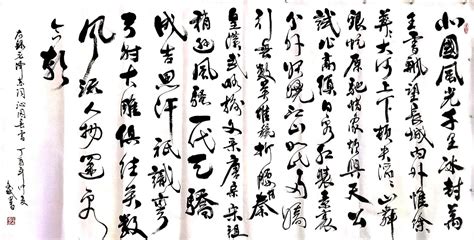 北國風光千里冰封萬
里雪飄望長城內外惟餘
莽莽大河上下頓失滔滔山舞
銀蛇原馳蠟象欲與天公
試比高須日晴看紅裝素裹
分外妖嬈江山如此多嬌
引無數英雄競折腰惜秦
皇漢武略輸文采唐宗宋祖
稍遜風騷一代天驕
成吉思汗祇識彎
弓射大雕俱往矣數
風流人物還看
今朝
右錄毛澤東詞沁園春雪丁酉年仲夏
書